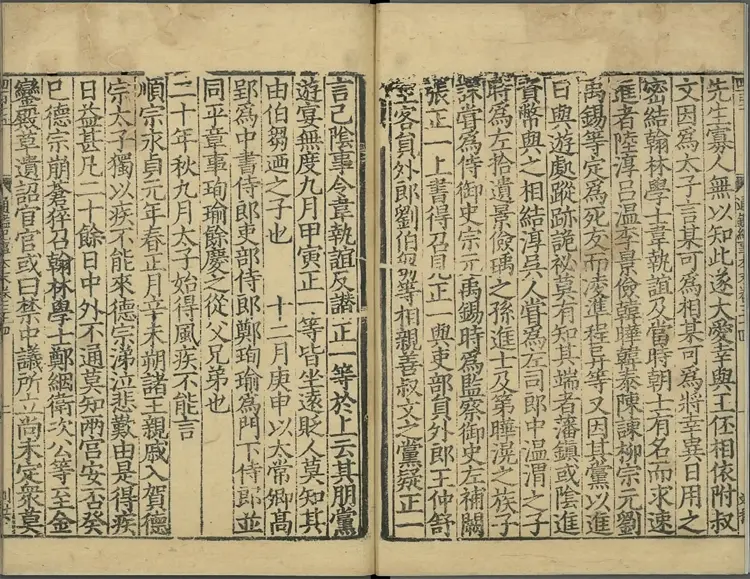 先生寡人無以知此遂大愛幸與王伾相依附叔
文因為太子言某可為相某可為將幸異日用之
密結翰林學士韋執誼及當時朝士有名而求速
進者陸淳呂溫李景儉韓曄韓泰陳諫柳宗元劉
禹錫等定為死友而凌準程异等又因其黨以進
日與遊處蹤跡詭祕莫有知其端者藩鎮或陰進
資幣與之相結淳吳人嘗為左司郎中溫渭之子
時為左拾遺景儉瑀之孫進士及第曄滉之族子
諫嘗為侍御史宗元禹錫時為監察御史左補闕
張正一上書得召見正一與吏部員外郎王仲舒
主客員外郎劉伯芻等相親善叔文之黨疑正一
言己陰事令韋執誼反譖正一等於上云其朋黨
遊宴無度九月甲寅正一等皆坐遠貶人莫知其
由伯芻迺之子也　十二月庚申以太常卿高
郢為中書侍郎吏部侍郎鄭珣瑜為門下侍郎並
同平章事珣瑜餘慶之從父兄弟也
二十年秋九月太子始得風疾不能言
順宗永貞元年春正月辛未朔諸王親戚入賀德
宗太子獨以疾不能來德宗涕泣悲歎由是得疾
日益甚凡二十餘日中外不通莫知兩宮安否癸
巳德宗崩蒼猝召翰林學士鄭絪衛次公等至金
鑾殿草遺詔宦官或曰禁中議所立尚未定衆莫